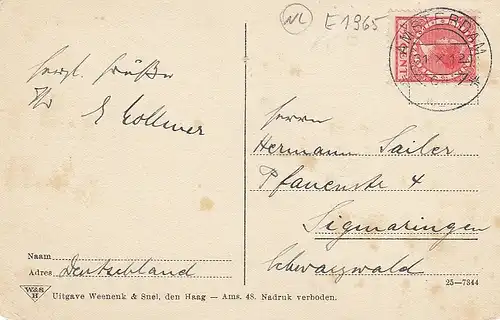 NL E 1965
AMSTERDAM
herzl. Grüße
Ihr E Kollmer
Herrn
Hermann Sailer
Pfauenstr 4
Sigmaringen
Schwarzwald
Naam
Adres Deutschland
25—7344
W&S
H
Uitgave Weenenk & Snel, den Haag — Ams. 48. Nadruk verboden.